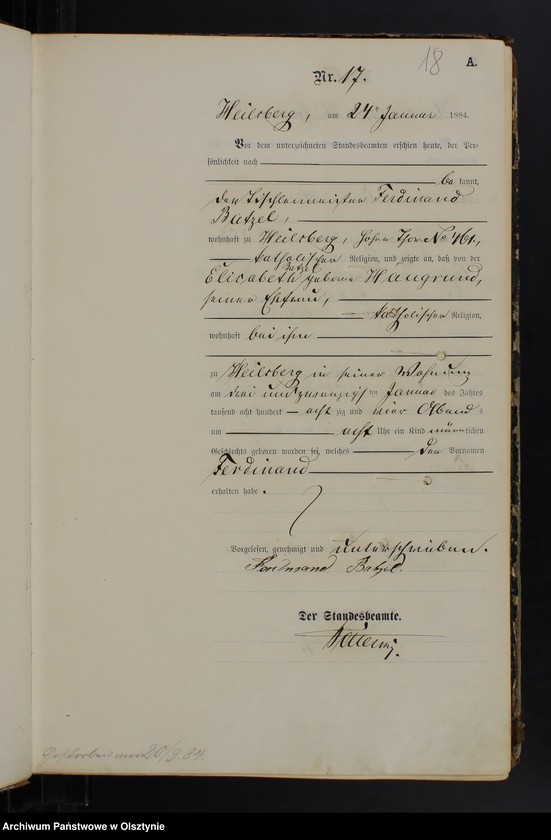 18
A.
Nr. 17.
Heilsberg, am 24ten Januar 1884.
Vor dem unterzeichneten Standesbeamten erschien heute, der Per-
sönlichkeit nach
be kannt,
der Tischlermeister Ferdinand
Batzel,
wohnhaft zu Heilsberg, Hohes Thor No 461,
katholischer Religion, und zeigte an, daß von der
Elisabeth Batzel geborne Haugrund,
seiner Ehefrau,
katholischer Religion,
wohnhaft bei ihm
zu Heilsberg in seiner Wohnung
am drei und zwanzigsten Januar des Jahres
tausend acht hundert achtzig und vier Abends
um acht Uhr ein Kind männlichen
Geschlechts geboren worden sei, welches den Vornamen
Ferdinand
erhalten habe.
Vorgelesen, genehmigt und unterschrieben.
Ferdinand Batzel.
Der Standesbeamte.
Gestorben am 20/9.84.
Archiwum Państwowe w Olsztynie